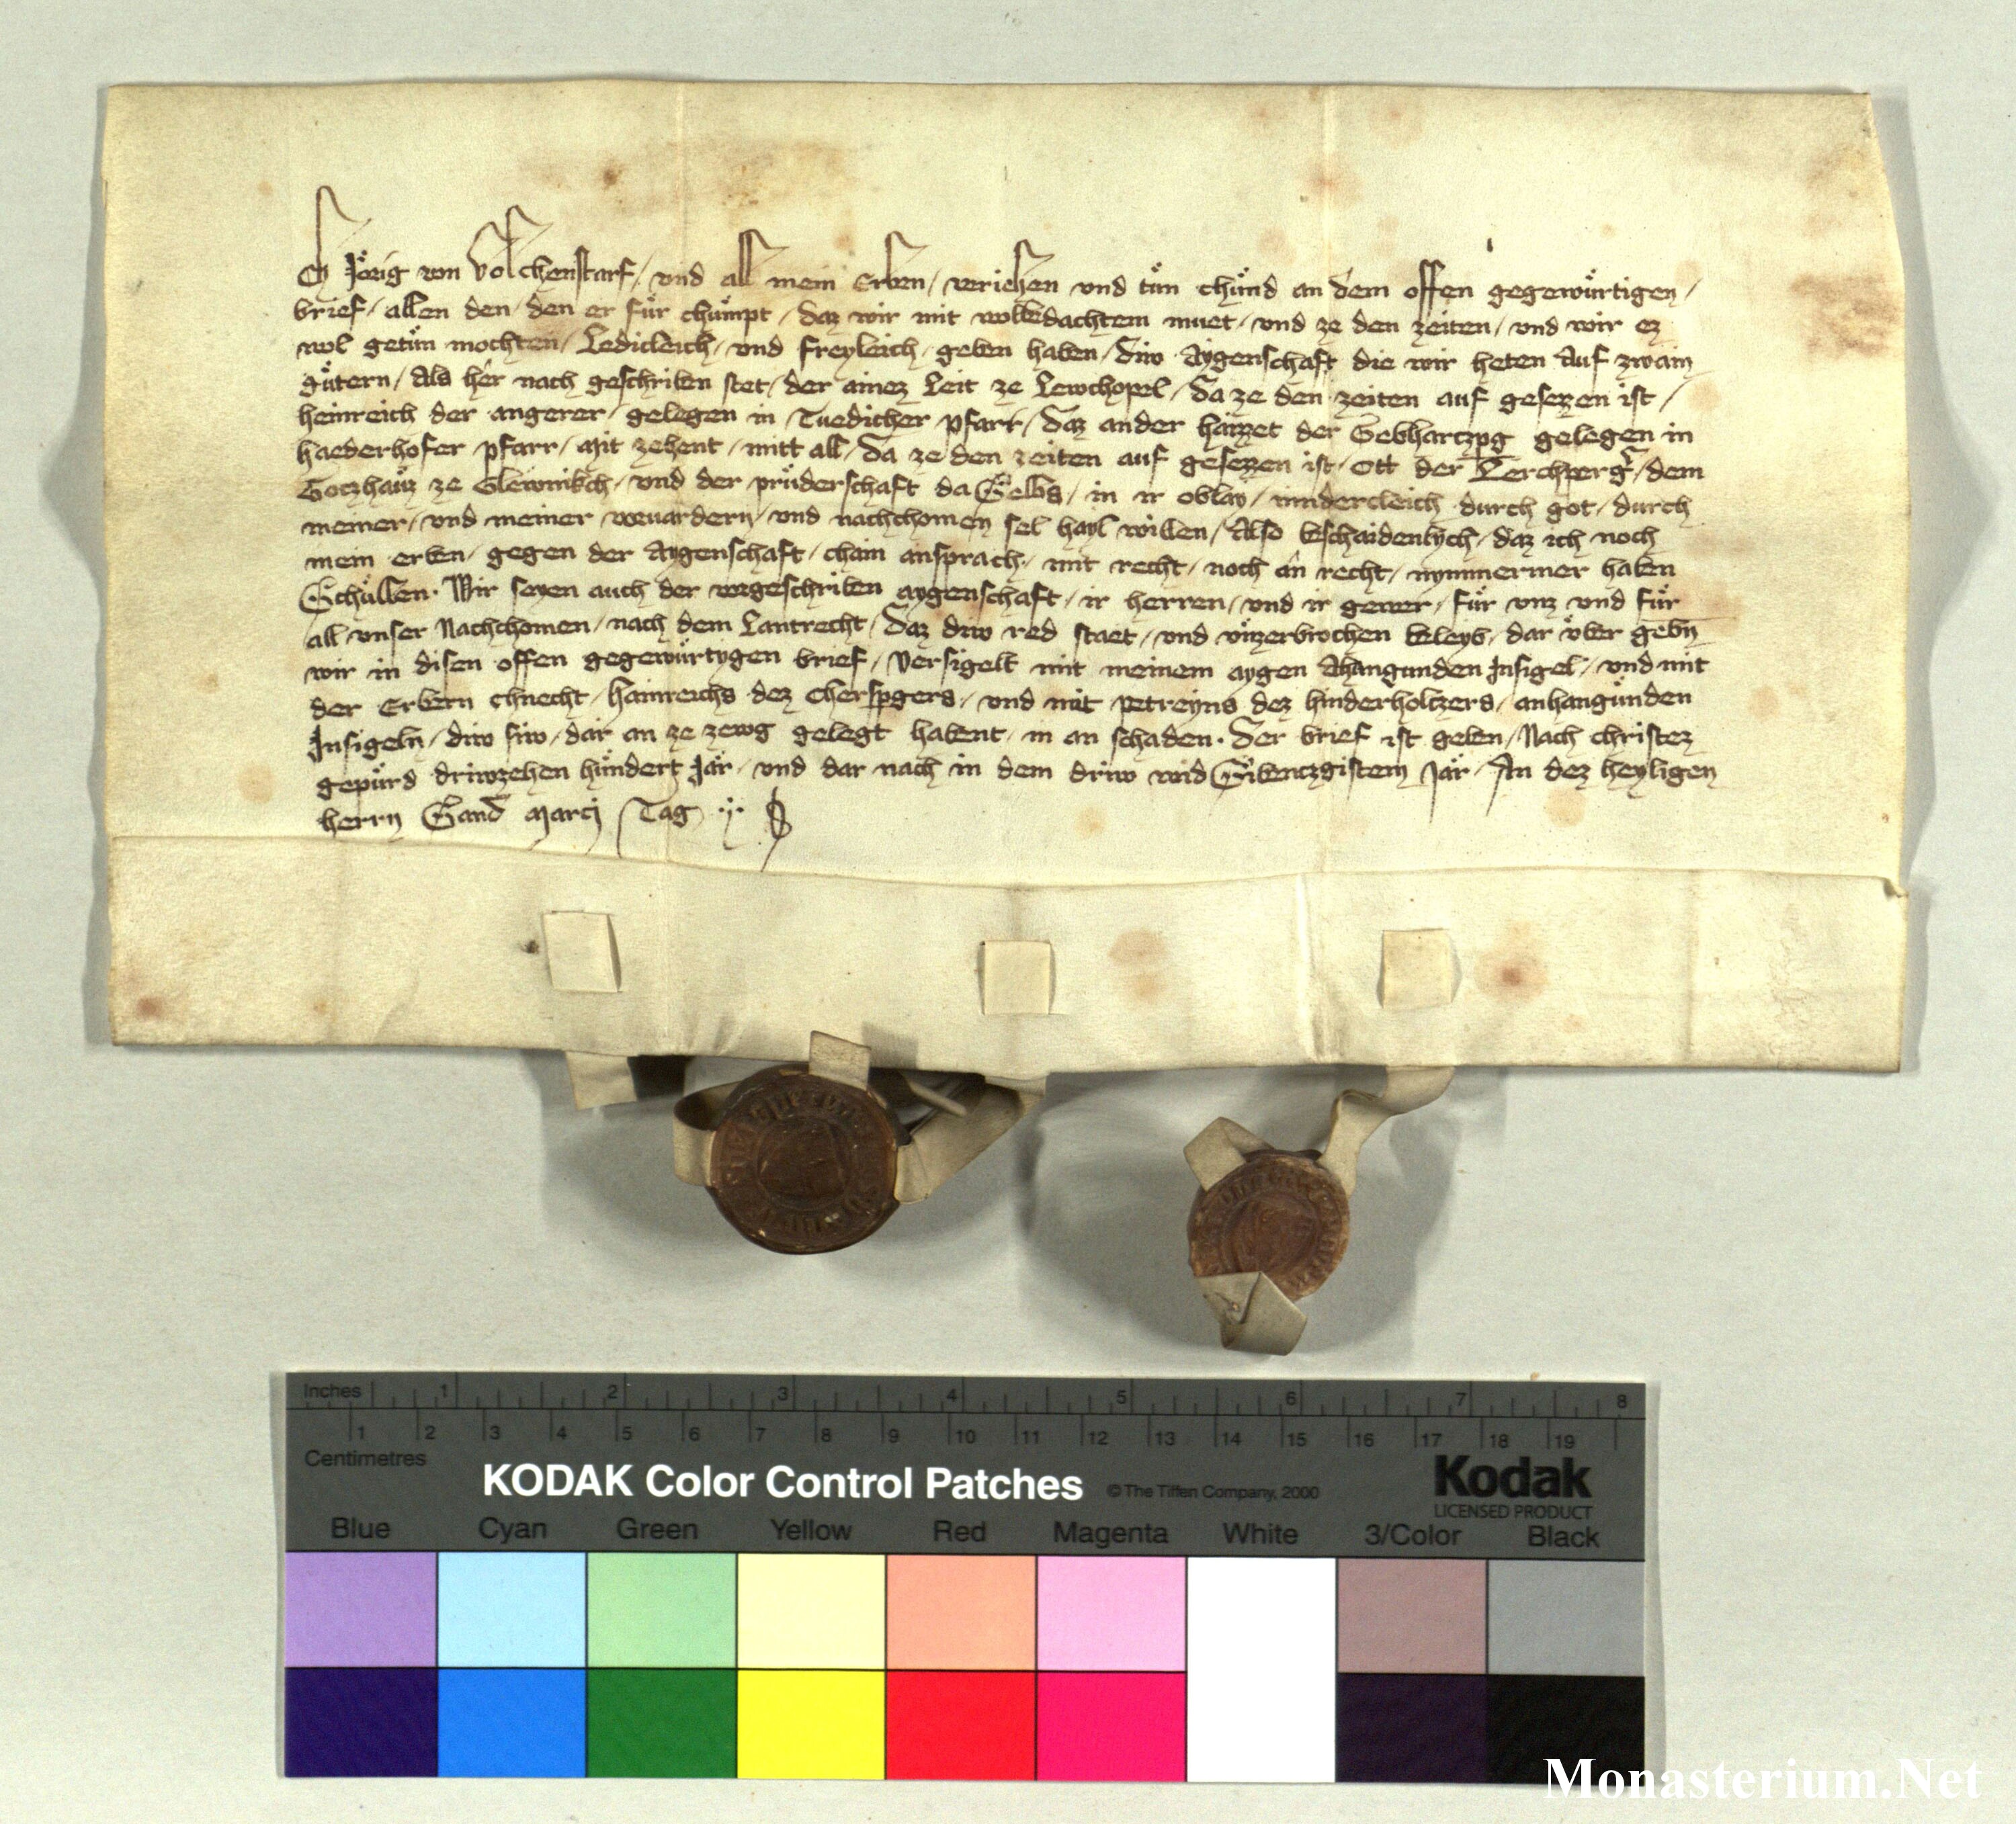 Ch Jo̎rig von Volchenstarf / vnd all mein Erben / veriehen vnd tu̎n chu̎nd an dem offen gegewu̎rtigen /
brief / allen den / den er fu̎r chu̎mpt / daz wir mit wolbedachtem muet / vnd ze den zeiten / vnd wir ez
wol getu̎n mochten / Ledicleich / vnd freyleich / geben haben / Diw Aygenschaft die wir heten Auf zwain
gu̎tern / Als her nach geschriben stet / der ainez Leit ze Lewchopel / Da ze den zeiten auf gesezzen ist /
heinreich der angerer / gelegen in Tuedicher pfarr / Daz ander haizzet der Gebhartzpg gelegen in
haederhofer pfarr / Mit zehent / mitt all / Da ze den zeiten auf gesezzen ist / Ott der Lerchperg̃ / dem
Gotzhau̎z ze Glewnikch / vnd der pru̎derschaft da Selbs / in ir oblay / mindercleich durch got / durch
meiner / vnd meiner voruardern / vnd nachchomen sel hayl willen / Also beschaidenlych / daz ich noch
mein erben / gegen der Aygenschaft / chain ansprach / mit recht / noch an recht / nymmermer haben
Schu̎llen. Wir seyen auch der vorgeschriben aygenschaft / ir herren / vnd ir gewer / fu̎r vnz vnd fu̎r
all vnser Nachchomen / nach dem Lantrecht / Daz diw red staet / vnd vnzerbrochen beleyb / dar vber gebn
wir in disen offen gegewu̎rtygen brief / Versigelt mit meinem aygen Ahangunden Insigel / vnd mit
der Erbern chnecht / Hainreichs dez Cherspgers / vnd mit petreyns dez hinderholtzers / anhangu̎nden
Insigeln / diw siw / dar an ze zewg gelegt habent / in an schaden. Der brief ist geben / Nach christez
gepu̎rd driwzehen hu̎ndert Jar / vnd dar nach in dem driw vnd Sibentzgistem Jar / An dez heyligen
herrn Sand Marcj Tag
Inches 1 2 3 4 5 6 7 8
1 2 3 4 5 6 7 8 9 10 11 12 13 14 15 16 17 18 19
Centimetres
KODAK Color Control Patches © The Tiffen Company, 2000 Kodak
LICENSED PRODUCT
Blue Cyan Green Yellow Red Magenta White 3/Color Black
Monasterium.Net